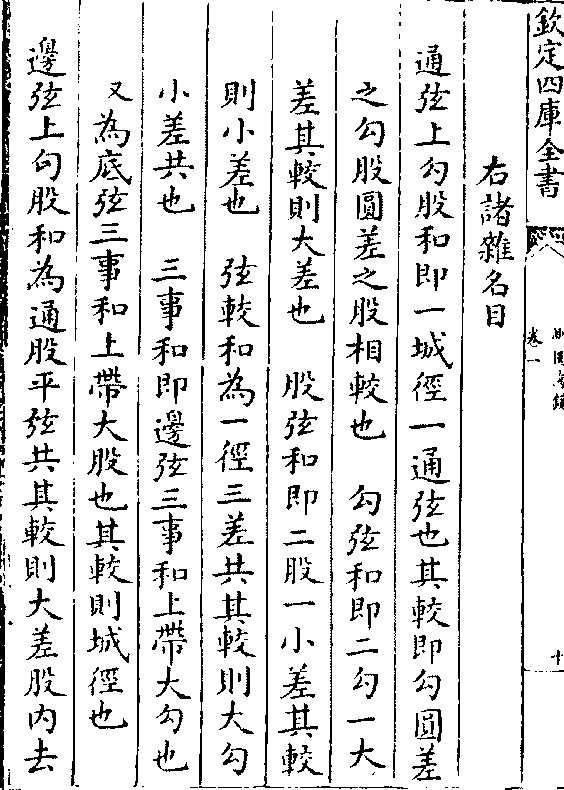 欽定四庫全書
卷一
十
右諸雜名目
通弦上勾股和即一城徑一通弦也其較即勾圓差
之勾股圓差之股相較也　勾弦和即二勾一大
差其較則大差也　股弦和即二股一小差其較
則小差也　弦較和為一徑三差共其較則大勾
小差共也　三事和即邊弦三事和上帶大勾也
又為底弦三事和上帶大股也其較則城徑也
邊弦上勾股和為通股平弦共其較則大差股內去